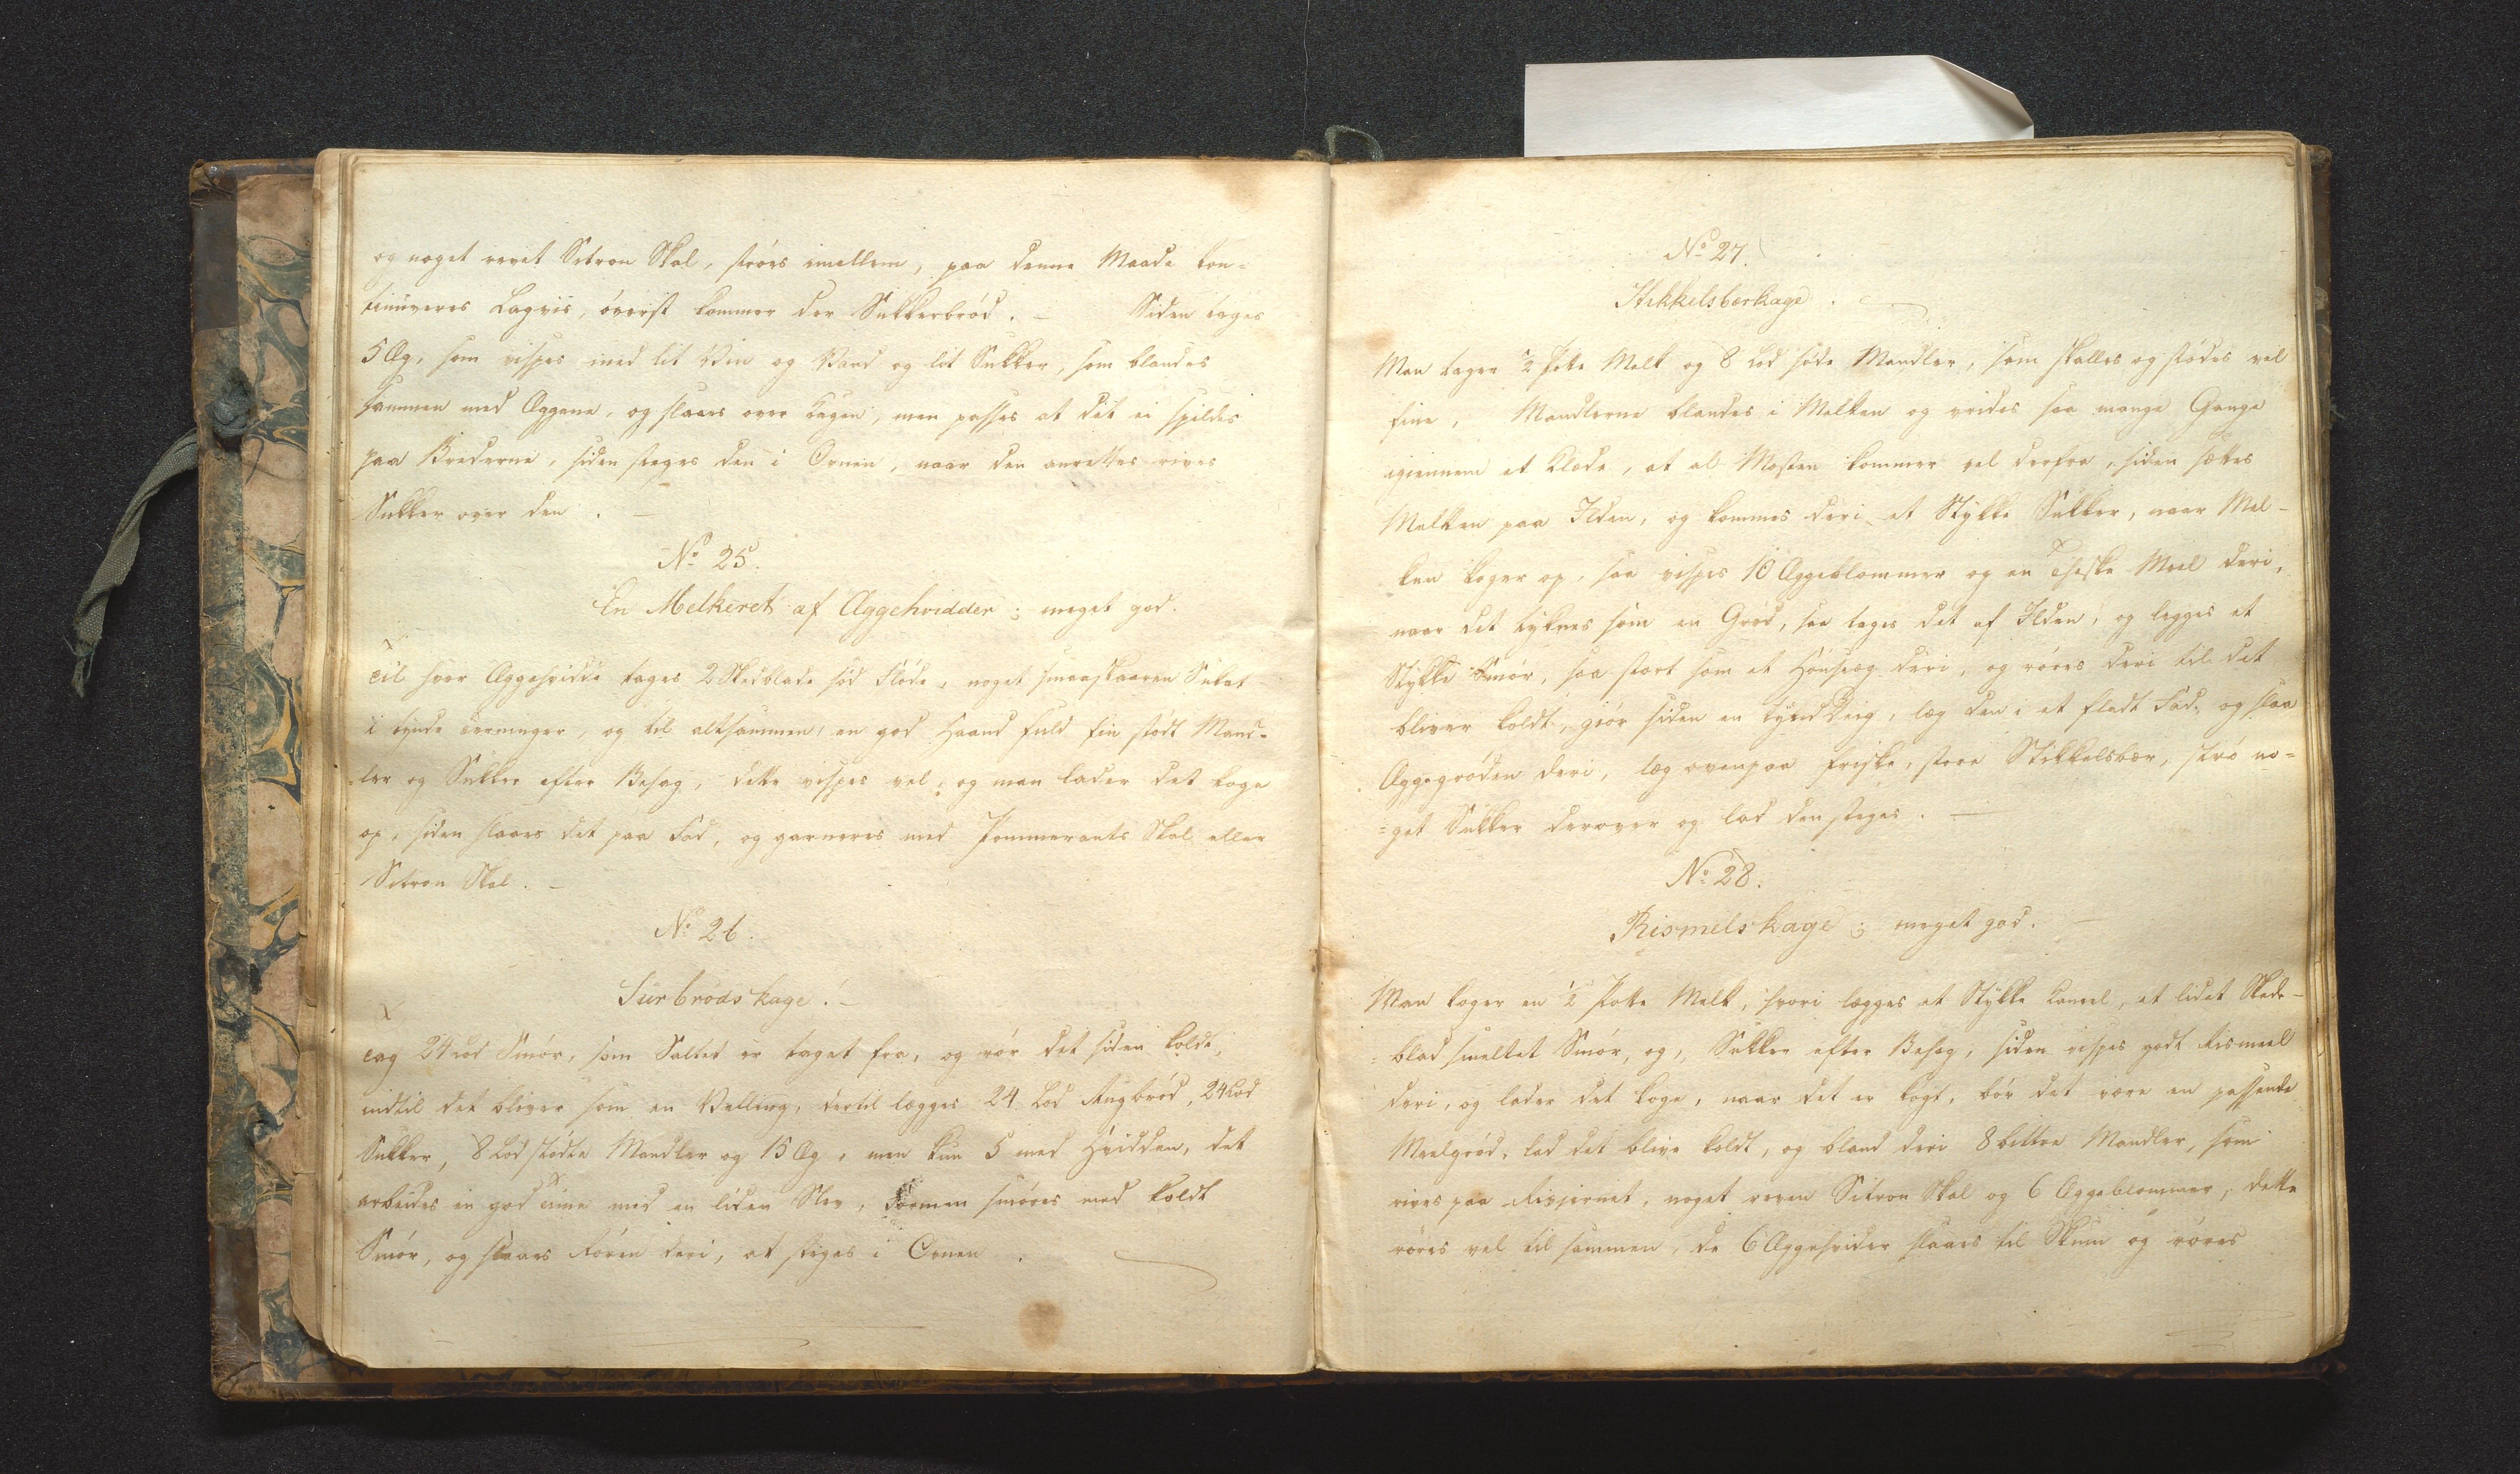 og noget revet Sitron Skal, ströes imellem, paa denne Maade kon-
tinuveres Lagvis, överst kommer der Sukkerbröd. – Siden tages
5 Æg, som vispes med lit Viin og Vand og lit Sukker, som blandes
sammen med Æggene, og slaaes over Kagen, men passes at det ei spildes
paa Brederne, siden steges den i Ovnen, naar den anrettes rives
Sukker over den. –
No 25.
En Melkeret af Æggehvidder; meget god.
Til hver Æggehvidde tages 2 Skedblade söd Flöde, noget smaaskaaren Sukat
i tynde Terninger, og til altsammen, en god Haand fuld fin stödt Mand-
ler og Sukker efter Behag, dette vispes vel; og man lader det koge
op, siden slaaes det paa Fad, og garneres med Pommerants Skal eller
Sitron Skal. –
No 26.
Surbröds kage. –
Tag 24 Lod Smör, som Saltet er taget fra, og rör det siden koldt,
indtil det bliver som en Velling, dertil lægges 24 Lod Rugbröd, 24 Lod
Sukker, 8 Lod stödte Mandler og 15 Æg, men kun 5 med Hvidden, det
arbeides en god Time med en liden Slev, Formen smöres med koldt
Smör, og slaaes Rören deri, at steges i Ovnen.
No 27.
Stikkelsbærkage.
Man tager 1/2 Potte Melk og 8 Lod söde Mandler, som skalles og stödes vel
fine, Mandlerne blandes i Melken og vrides saa mange Gange
igiennem et Klæde, at al Mosten kommer vel derfra, siden sættes
Melken paa Ilden, og kommes deri et Stykke Sukker, naar Mel-
ken koger op, saa vispes 10 Æggeblommer og en Theske Meel deri,
naar det tyknes som en Gröd, saa tages det af Ilden, og legges et
Stykke Smör, saa stort som et Hönseæg deri, og röres deri til det
bliver koldt, giör siden en tynd Deig, læg den i et fladt Fad, og slaa
Æggegröden deri, læg ovenpaa friske, store Stikkelsbær, strö no-
=get Sukker derover og lad den steges. –
No 28.
Rismels kage; meget god.
Man koger en 1/2 Potte Melk, hvori lægges et Stykke Kaneel, et lidet Skede-
blad smeltet Smör, og, Sukker efter Behag, siden vispes godt Rismeel
deri, og lader det koge, naar det er kogt, bör det være en passende
Meelgröd, lad det blive koldt, og bland deri 8 bittre Mandler, som
rives paa Rivjernet, noget reven Sitron Skal og 6 Æggeblommer, dette
röres vel til sammen, de 6 Æggehvider slaaes til Skum og röres